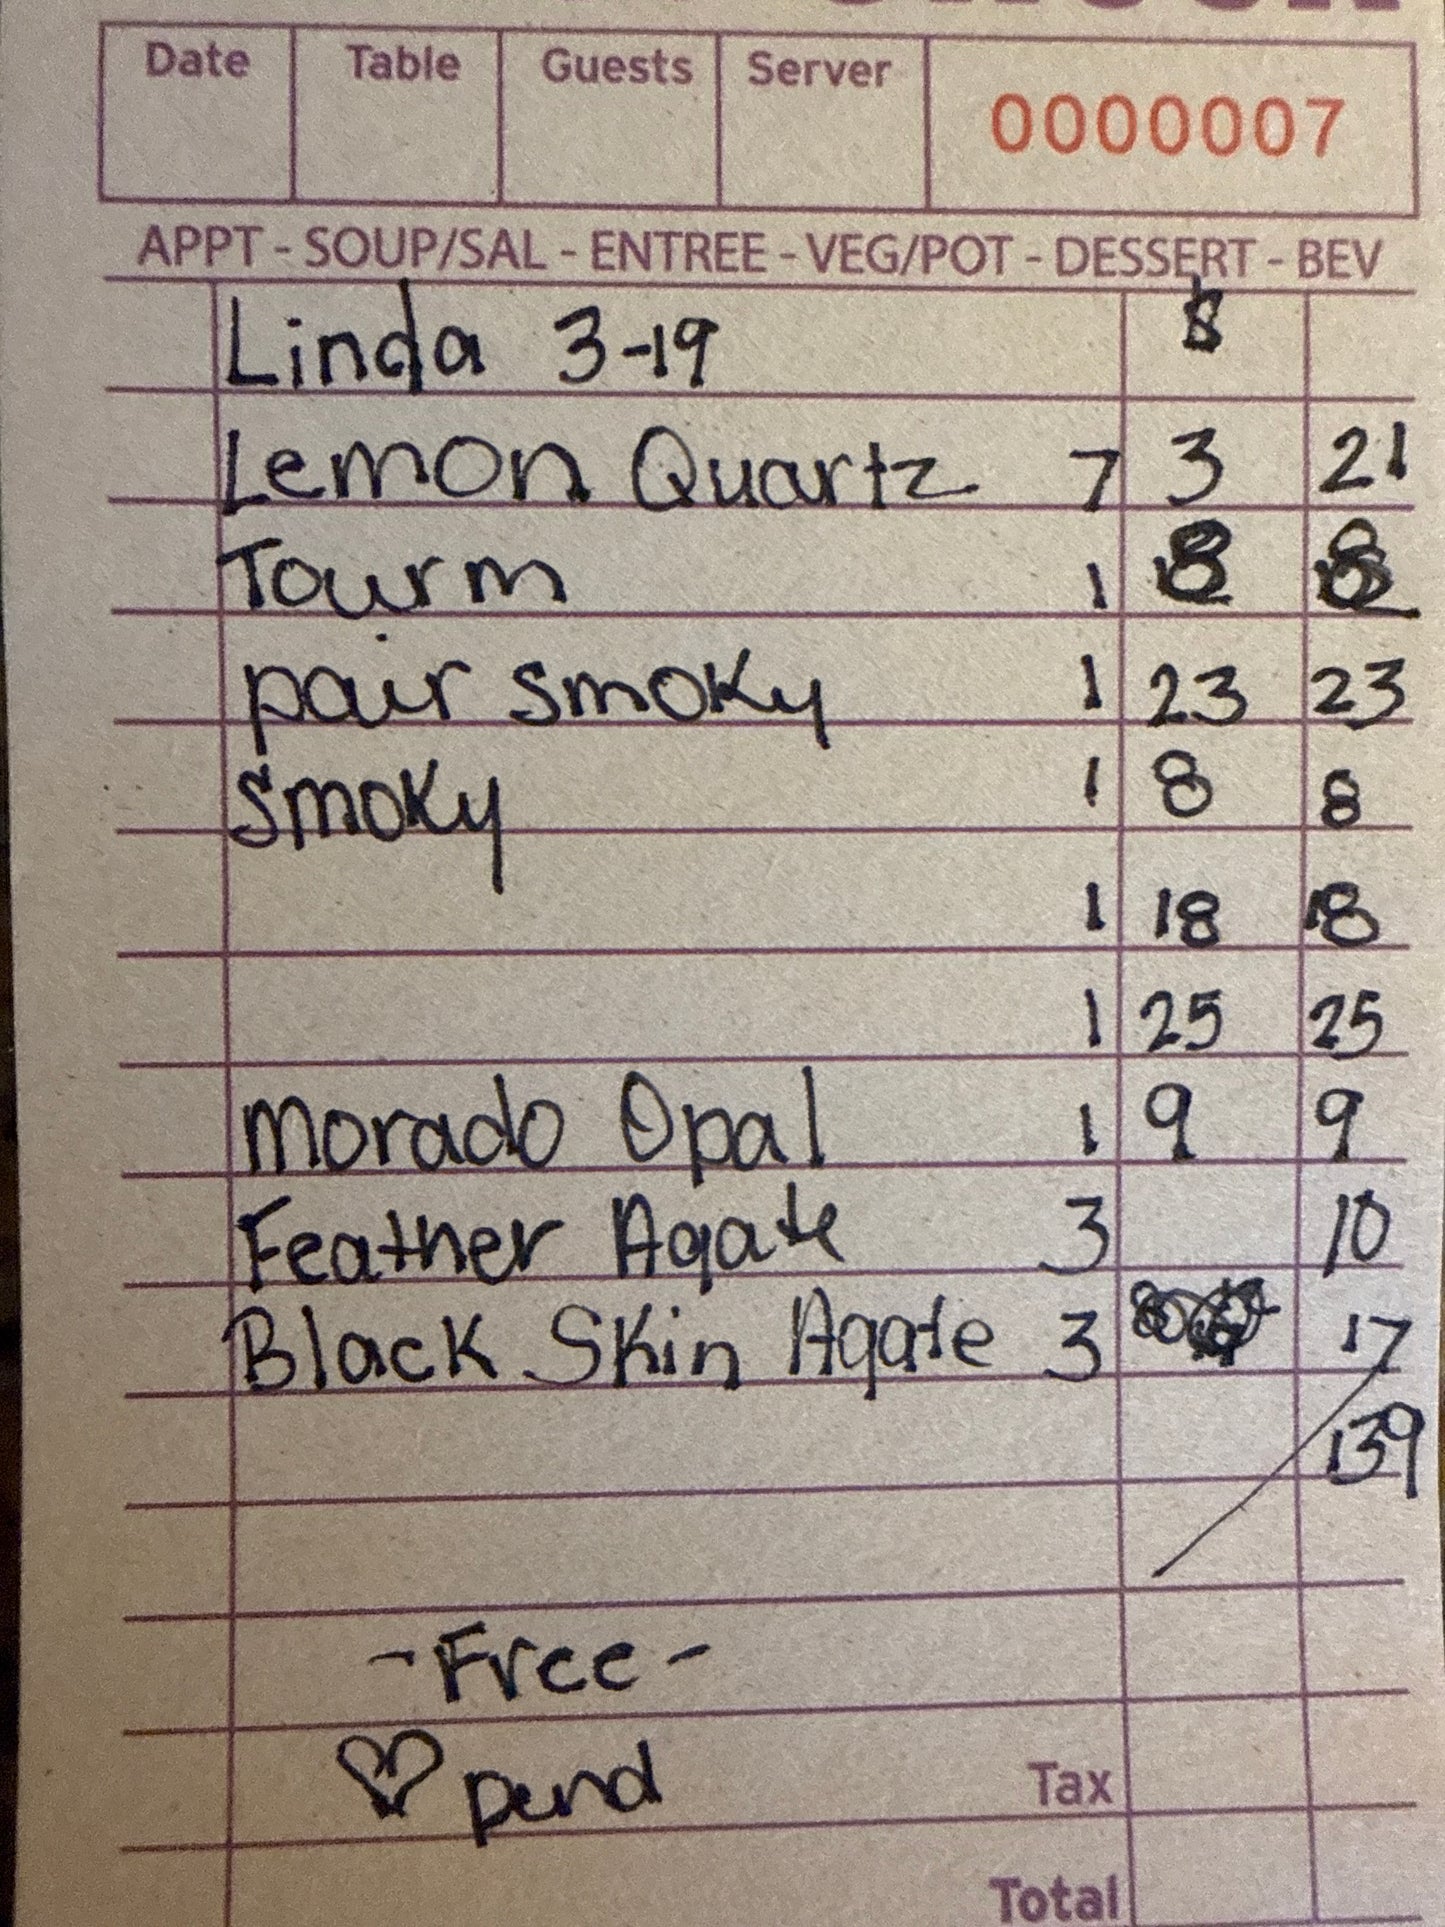 Date Table Guests Server 0000007
APPT - SOUP/SAL - ENTREE - VEG/POT - DESSERT - BEV
Linda 3-19
Lemon Quartz 7 3 21
Tourm 1 8 8
pair smoky 1 23 23
smoky 1 8 8
1 18 18
1 25 25
Morado Opal 1 9 9
Feather Agate 3 10
Black Skin Agate 3 17
139
- Free -
♡ pend
Tax
Total